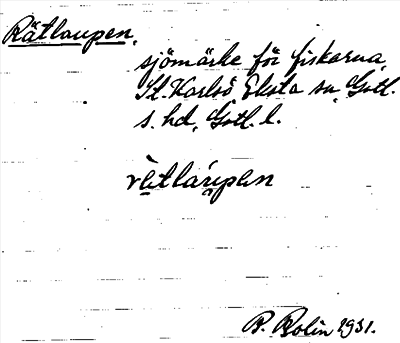 Rätlaupen,
sjömärke för fiskarna,
St. Karlsö Eksta sn, Gotl.
s. hd, Gotl. l.
rètláupen
P. Bolin 1931.